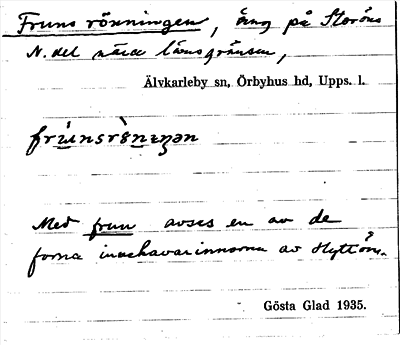 Frunsrönningen, äng på Storöns
N. del nära länsgränsen,
Älvkarleby sn, Örbyhus hd, Upps. l.
Med frun avses en av de
forna innehavarinnorna av Hyttön.
Gösta Glad 1935.